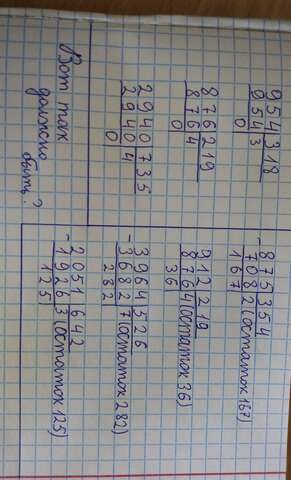 954|318
954|3
0
876|219
876|4
0
2940|735
2940|4
0
Вот так
должно
быть?
-875|354
708|2 (остаток 167)
167
912|219
876|4 (остаток 36)
36
-3964|526
3682|7 (остаток 282)
282
-2051|642
1926|3 (остаток 125)
125